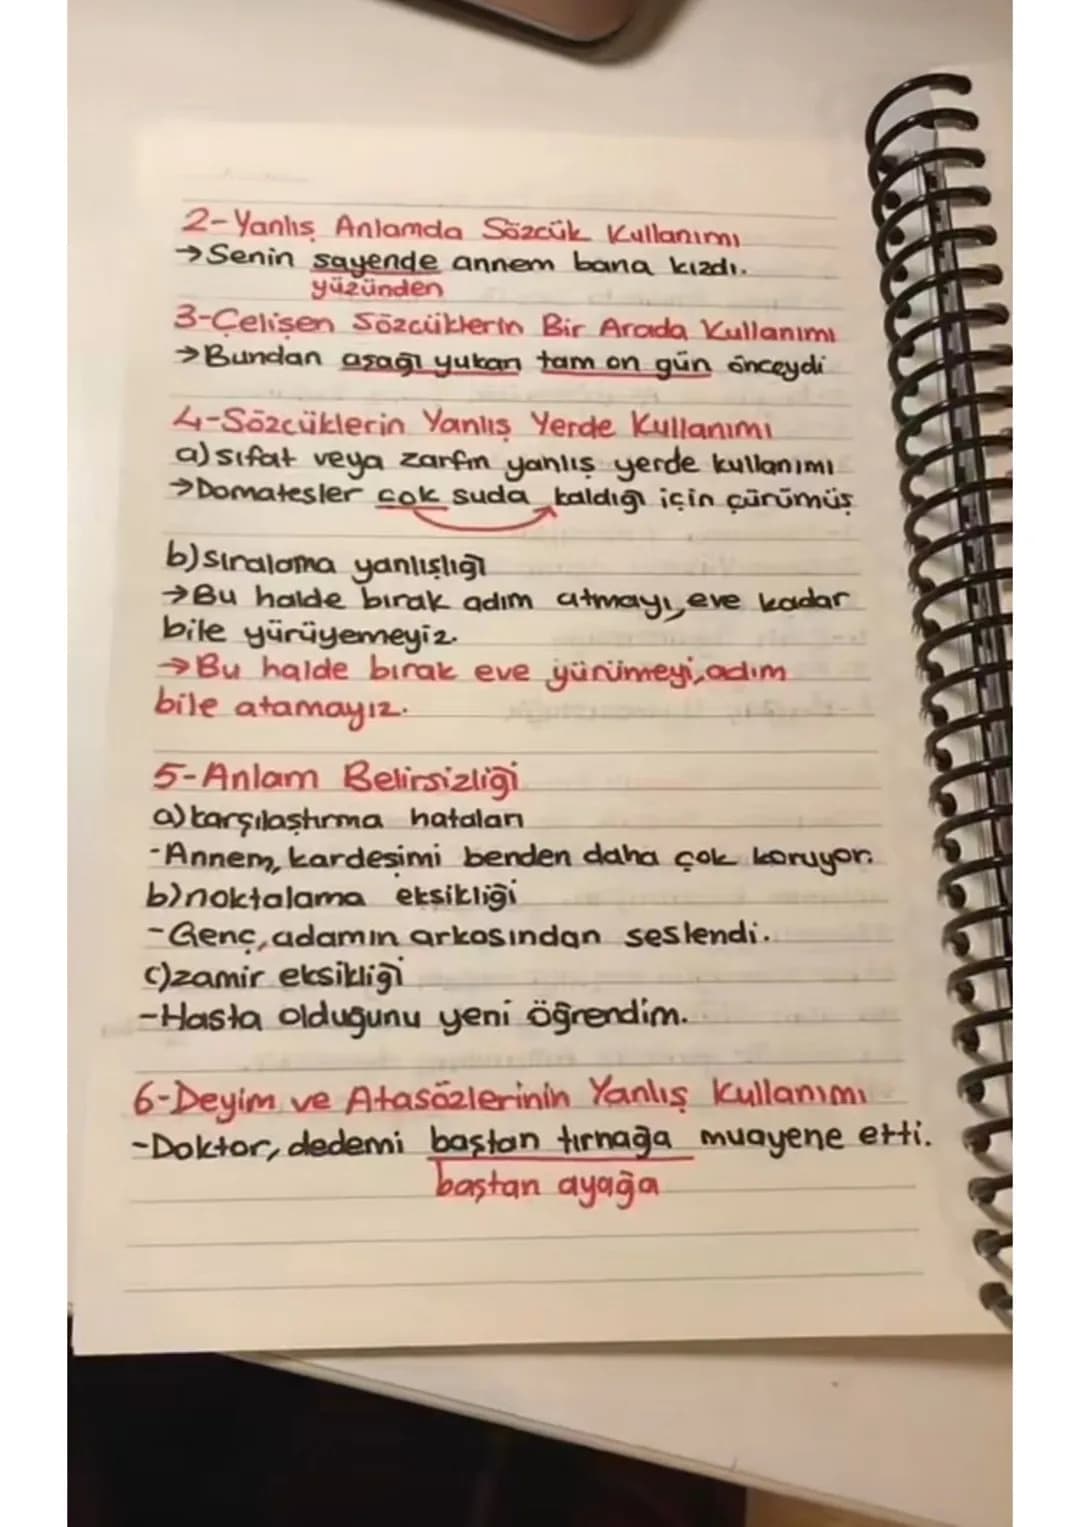 2-Yanlış Anlamda Sözcük Kullanımı
→Senin sayende annem bana kızdı.
yüzünden
3-Çelişen Sözcüklerin Bir Arada Kullanımı
→Bundan aşağı yukarı tam on gün önceydi
4-Sözcüklerin Yanlış Yerde Kullanımı
a) sıfat veya zarfın yanlış yerde kullanımı
→Domatesler çok suda kaldığı için çürümüş
b) sıralama yanlışlığı
→Bu halde bırak adım atmayı, eve kadar
bile yürüyemeyiz.
→Bu halde bırak eve yürümeyi, adım
bile atamayız.
5-Anlam Belirsizliği
a) karşılaştırma hataları
-Annem, kardeşimi benden daha çok koruyor.
b) noktalama eksikliği
-Genç, adamın arkasından seslendi.
c) zamir eksikliği
-Hasta olduğunu yeni öğrendim.
6-Deyim ve Atasözlerinin Yanlış Kullanımı
-Doktor, dedemi baştan tırnağa muayene etti.
baştan ayağa